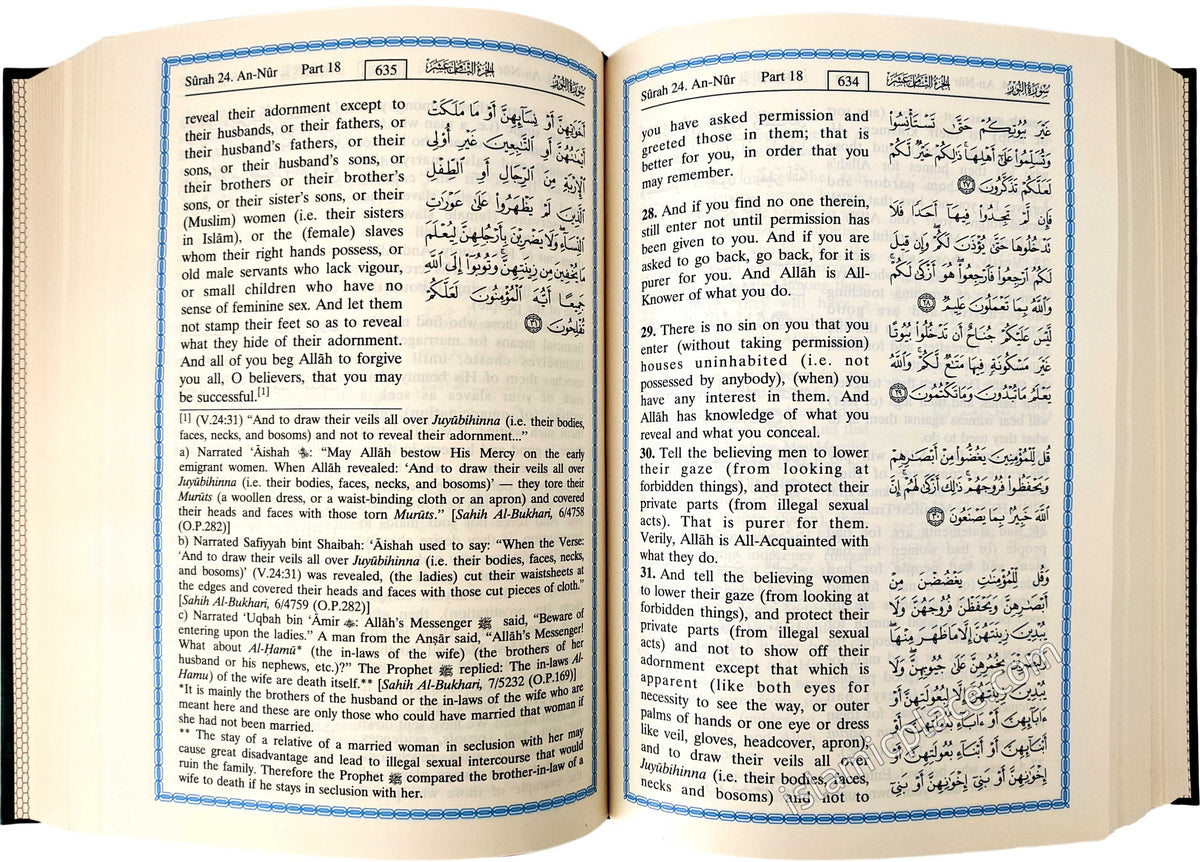 Sûrah 24. An-Nûr Part 18 634 الجزء الثامن عشر سورة النور
you have asked permission and
greeted those in them; that is
better for you, in order that you
may remember.
28. And if you find no one therein,
still enter not until permission has
been given to you. And if you are
asked to go back, go back, for it is
purer for you. And Allâh is All-
Knower of what you do.
29. There is no sin on you that you
enter (without taking permission)
houses uninhabited (i.e. not
possessed by anybody), (when) you
have any interest in them. And
Allâh has knowledge of what you
reveal and what you conceal.
30. Tell the believing men to lower
their gaze (from looking at
forbidden things), and protect their
private parts (from illegal sexual
acts). That is purer for them.
Verily, Allâh is All-Acquainted with
what they do.
31. And tell the believing women
to lower their gaze (from looking at
forbidden things), and protect their
private parts (from illegal sexual
acts) and not to show off their
adornment except that which is
apparent (like both eyes for
necessity to see the way, or outer
palms of hands or one eye or dress
like veil, gloves, headcover, apron),
and to draw their veils all over
Juyûbihinna (i.e. their bodies, faces,
necks and bosoms) and not to
غَيْرَ بُيُوتِكُمْ حَتَّىٰ تَسْتَأْنِسُوا
وَتُسَلِّمُوا عَلَىٰ أَهْلِهَا ذَٰلِكُمْ خَيْرٌ لَّكُمْ
لَعَلَّكُمْ تَذَكَّرُونَ ﴿٢٧﴾
فَإِن لَّمْ تَجِدُوا فِيهَا أَحَدًا فَلَا
تَدْخُلُوهَا حَتَّىٰ يُؤْذَنَ لَكُمْ وَإِن قِيلَ
لَكُمُ ارْجِعُوا فَارْجِعُوا هُوَ أَزْكَىٰ لَكُمْ
وَاللَّهُ بِمَا تَعْمَلُونَ عَلِيمٌ ﴿٢٨﴾
لَّيْسَ عَلَيْكُمْ جُنَاحٌ أَن تَدْخُلُوا بُيُوتًا
غَيْرَ مَسْكُونَةٍ فِيهَا مَتَاعٌ لَّكُمْ وَاللَّهُ
يَعْلَمُ مَا تُبْدُونَ وَمَا تَكْتُمُونَ ﴿٢٩﴾
قُل لِّلْمُؤْمِنِينَ يَغُضُّوا مِنْ أَبْصَارِهِمْ
وَيَحْفَظُوا فُرُوجَهُمْ ذَٰلِكَ أَزْكَىٰ لَهُمْ إِنَّ
اللَّهَ خَبِيرٌ بِمَا يَصْنَعُونَ ﴿٣٠﴾
وَقُل لِّلْمُؤْمِنَاتِ يَغْضُضْنَ مِنْ
أَبْصَارِهِنَّ وَيَحْفَظْنَ فُرُوجَهُنَّ وَلَا
يُبْدِينَ زِينَتَهُنَّ إِلَّا مَا ظَهَرَ مِنْهَا
وَلْيَضْرِبْنَ بِخُمُرِهِنَّ عَلَىٰ جُيُوبِهِنَّ وَلَا
يُبْدِينَ زِينَتَهُنَّ إِلَّا لِبُعُولَتِهِنَّ أَوْ
ءَابَآئِهِنَّ أَوْ ءَابَآءِ بُعُولَتِهِنَّ أَوْ
أَبْنَآئِهِنَّ أَوْ أَبْنَآءِ بُعُولَتِهِنَّ أَوْ
إِخْوَانِهِنَّ أَوْ بَنِي إِخْوَانِهِنَّ أَوْ بَنِي
Sûrah 24. An-Nûr Part 18 635 الجزء الثامن عشر سورة النور
reveal their adornment except to
their husbands, or their fathers, or
their husband's fathers, or their
sons, or their husband's sons, or
their brothers or their brother's
sons, or their sister's sons, or their
(Muslim) women (i.e. their sisters
in Islâm), or the (female) slaves
whom their right hands possess, or
old male servants who lack vigour,
or small children who have no
sense of feminine sex. And let them
not stamp their feet so as to reveal
what they hide of their adornment.
And all of you beg Allâh to forgive
you all, O believers, that you may
be successful.[1]
أَخَوَاتِهِنَّ أَوْ نِسَآئِهِنَّ أَوْ مَا مَلَكَتْ
أَيْمَانُهُنَّ أَوِ التَّابِعِينَ غَيْرِ أُوْلِي
الْإِرْبَةِ مِنَ الرِّجَالِ أَوِ الطِّفْلِ
الَّذِينَ لَمْ يَظْهَرُوا عَلَىٰ عَوْرَاتِ
النِّسَآءِ وَلَا يَضْرِبْنَ بِأَرْجُلِهِنَّ لِيُعْلَمَ
مَا يُخْفِينَ مِن زِينَتِهِنَّ وَتُوبُوا إِلَى اللَّهِ
جَمِيعًا أَيُّهَ الْمُؤْمِنُونَ لَعَلَّكُمْ
تُفْلِحُونَ ﴿٣١﴾
[1] (V.24:31) "And to draw their veils all over Juyûbihinna (i.e. their bodies,
faces, necks, and bosoms) and not to reveal their adornment..."
a) Narrated 'Âishah رضي الله عنها: "May Allâh bestow His Mercy on the early
emigrant women. When Allâh revealed: 'And to draw their veils all over
Juyûbihinna (i.e. their bodies, faces, necks, and bosoms)' — they tore their
Murûts (a woollen dress, or a waist-binding cloth or an apron) and covered
their heads and faces with those torn Murûts." [Sahih Al-Bukhari, 6/4758
(O.P.282)]
b) Narrated Safiyyah bint Shaibah: 'Âishah used to say: "When the Verse:
'And to draw their veils all over Juyûbihinna (i.e. their bodies, faces, necks,
and bosoms)' (V.24:31) was revealed, (the ladies) cut their waistsheets at
the edges and covered their heads and faces with those cut pieces of cloth."
[Sahih Al-Bukhari, 6/4759 (O.P.282)]
c) Narrated 'Uqbah bin 'Âmir رضي الله عنه: Allâh's Messenger ﷺ said, "Beware of
entering upon the ladies." A man from the Anṣâr said, "Allâh's Messenger!
What about Al-Hamû* (the in-laws of the wife) (the brothers of her
husband or his nephews, etc.)?" The Prophet ﷺ replied: The in-laws Al-
Hamu) of the wife are death itself.** [Sahih Al-Bukhari, 7/5232 (O.P.169)]
*It is mainly the brothers of the husband or the in-laws of the wife who are
meant here and these are only those who could have married that woman if
she had not been married.
** The stay of a relative of a married woman in seclusion with her may
cause great disadvantage and lead to illegal sexual intercourse that would
ruin the family. Therefore the Prophet ﷺ compared the brother-in-law of a
wife to death if he stays in seclusion with her.
islamicplace.com